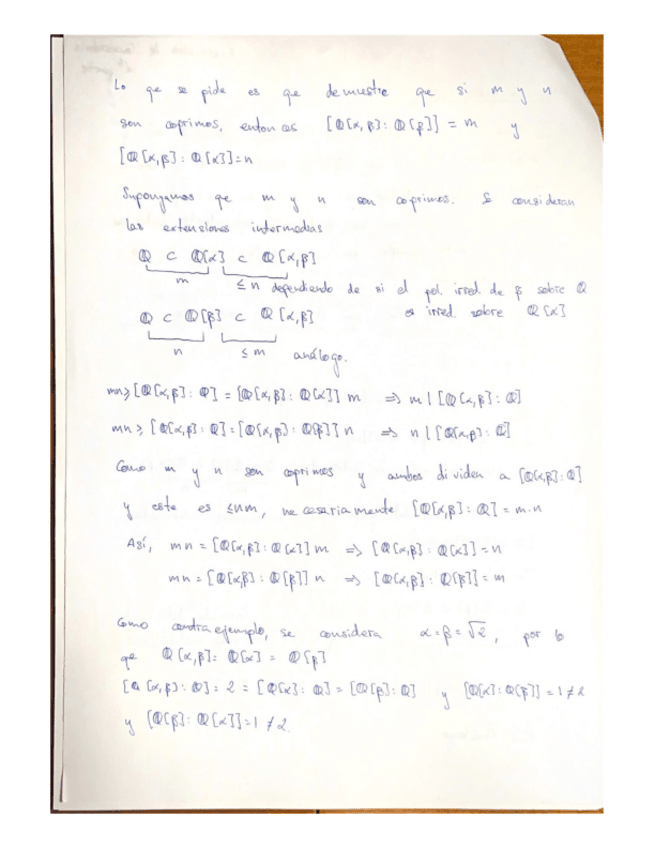 Lo que se pide es que demuestre que si m y n
son coprimos, entonces [Q[α,β] : Q[β]] = m y
[Q[α,β] : Q[α]] = n
Supongamos que m y n son coprimos. Se consideran
las extensiones intermedias
Q ⊂ Q[α] ⊂ Q[α,β]
m ≤ n dependiendo de si el pol. irred. de β sobre Q
es irred. sobre Q[α]
Q ⊂ Q[β] ⊂ Q[α,β]
n ≤ m análogo.
mn ≥ [Q[α,β] : Q] = [Q[α,β] : Q[α]] m ⇒ m | [Q[α,β] : Q]
mn ≥ [Q[α,β] : Q] = [Q[α,β] : Q[β]] n ⇒ n | [Q[α,β] : Q]
Como m y n son coprimos y ambos dividen a [Q[α,β] : Q]
y este es ≤ nm, necesariamente [Q[α,β] : Q] = m·n
Así, mn = [Q[α,β] : Q[α]] m ⇒ [Q[α,β] : Q[α]] = n
mn = [Q[α,β] : Q[β]] n ⇒ [Q[α,β] : Q[β]] = m
Como contraejemplo, se considera α = β = √2, por lo
que Q[α,β] = Q[α] = Q[β]
[Q[α,β] : Q] = 2 = [Q[α] : Q] = [Q[β] : Q] y [Q[α] : Q[β]] = 1 ≠ 2
y [Q[β] : Q[α]] = 1 ≠ 2.